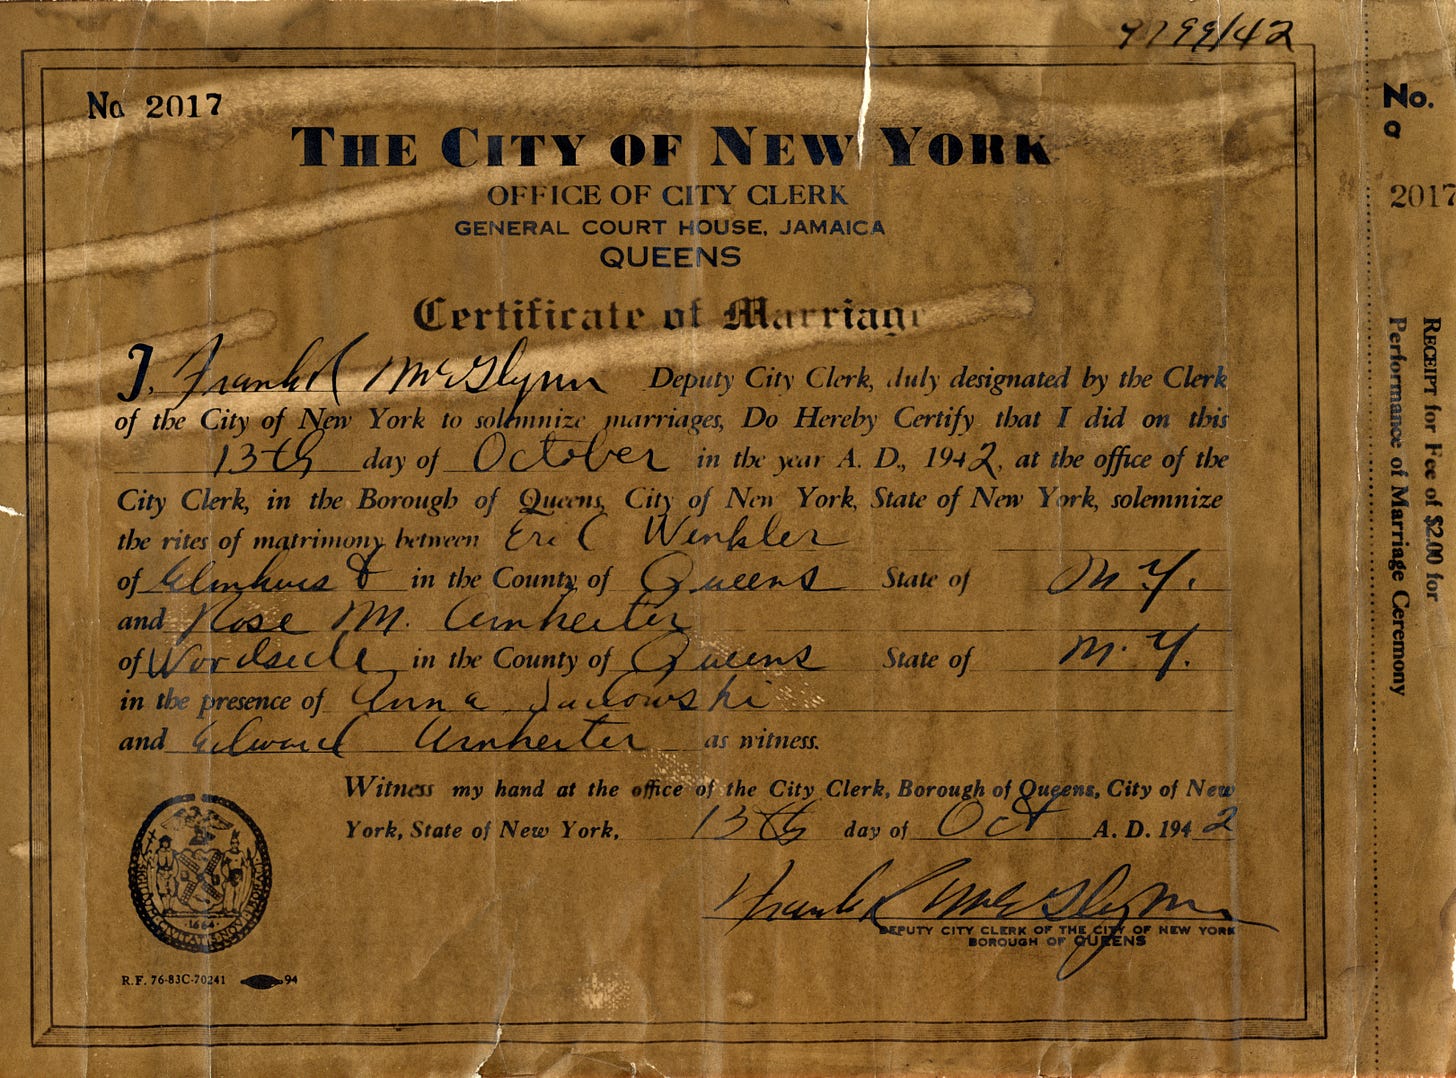 9799/42
No 2017
THE CITY OF NEW YORK
OFFICE OF CITY CLERK
GENERAL COURT HOUSE, JAMAICA
QUEENS
Certificate of Marriage
I, Frank R McGlynn Deputy City Clerk, duly designated by the Clerk
of the City of New York to solemnize marriages, Do Hereby Certify that I did on this
13th day of October in the year A. D., 1942, at the office of the
City Clerk, in the Borough of Queens, City of New York, State of New York, solemnize
the rites of matrimony between Eric Winkler
of Elmhurst in the County of Queens State of N.Y.
and Rose M. Arnheiter
of Woodside in the County of Queens State of N.Y.
in the presence of Anna
and Edward Arnheiter as witness.
Witness my hand at the office of the City Clerk, Borough of Queens, City of New
York, State of New York, 13th day of Oct A. D. 1942
Frank R McGlynn
DEPUTY CITY CLERK OF THE CITY OF NEW YORK
BOROUGH OF QUEENS
1664
R.F. 76-83C-70241 94
No.
Q
2017
RECEIPT for Fee of $2.00 for
Performance of Marriage Ceremony